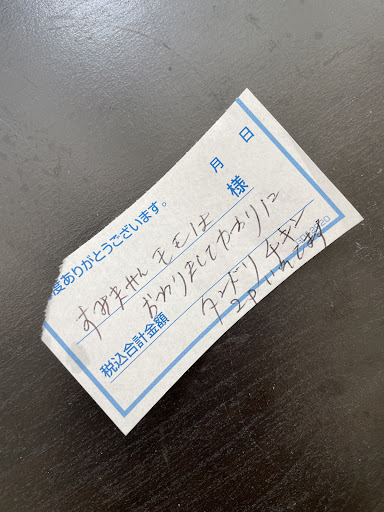 度ありがとうございます。 月 日
様
すみません モモは
おわりましてかわりに
タンドリチキン
2P いれてます
税込合計金額